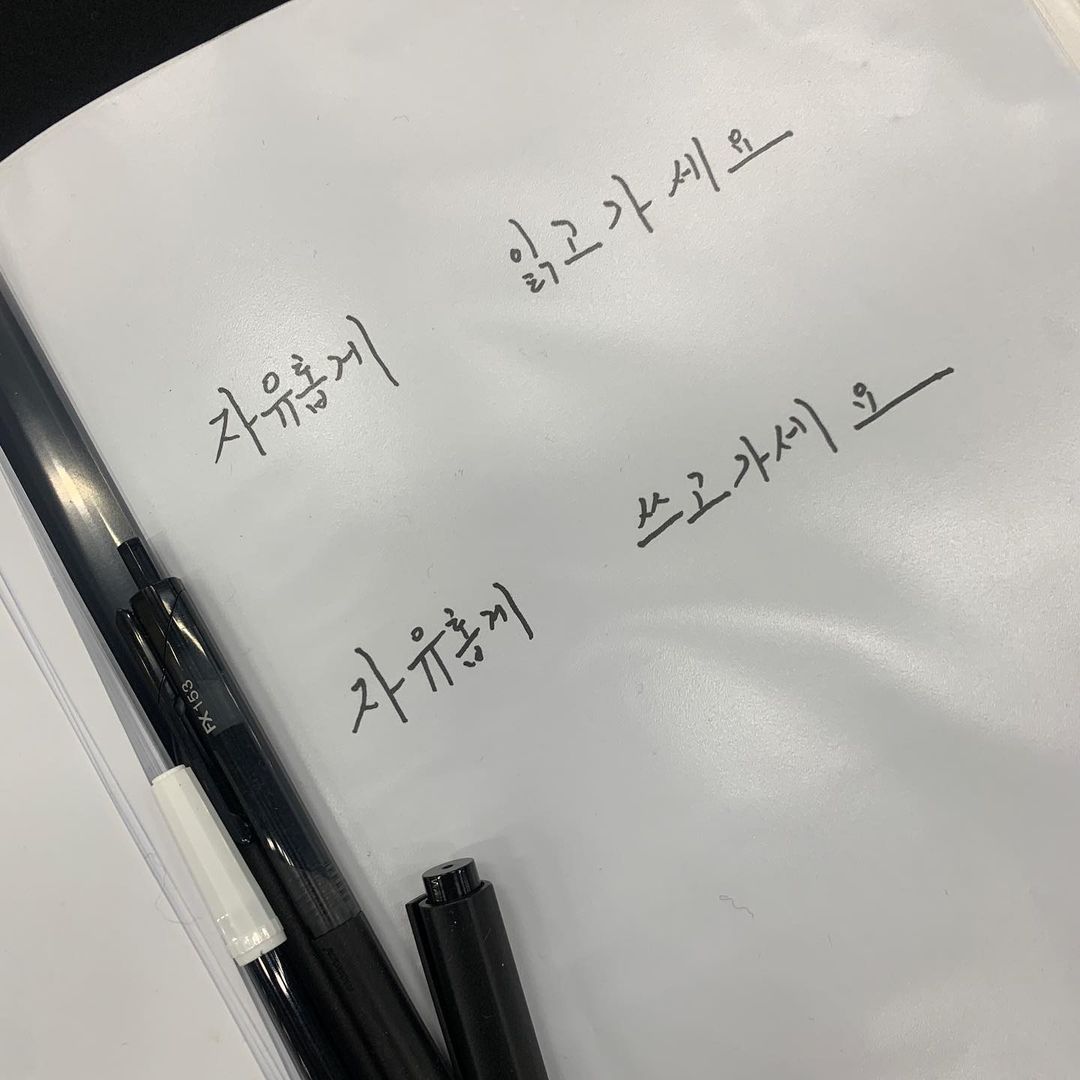 자유롭게 읽고가세요
자유롭게 쓰고가세요
FX 153